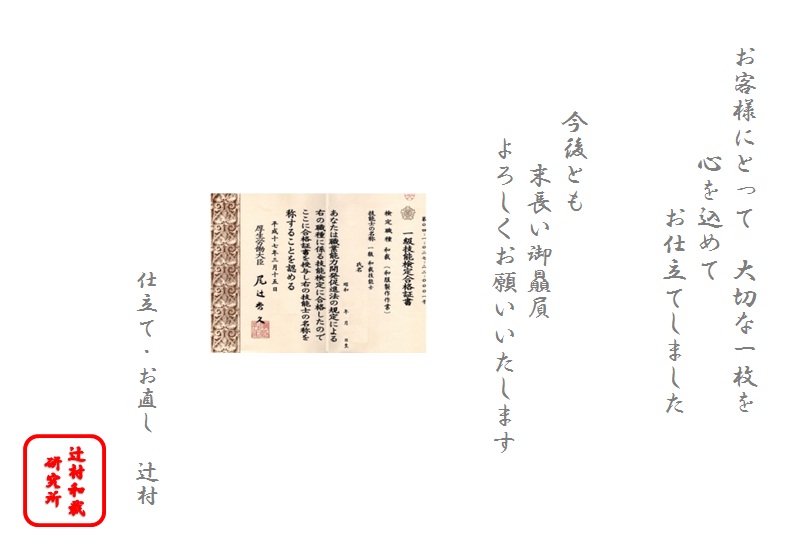 お客様にとって 大切な一枚を
心を込めて
お仕立てしました
今後とも
末長い御贔屓
よろしくお願いいたします
一級技能検定合格証書
検定職種 和裁（和服製作作業）
技能士の名称 一級 和裁技能士
氏名
昭和 年 月 日生
あなたは職業能力開発促進法の規定による
右の職種に係る技能検定に合格したので
ここに合格証書を授与し右の技能士の名称を
称することを認める
平成十七年三月十五日
厚生労働大臣 尾辻秀久
仕立て・お直し 辻村
辻村和裁
研究所